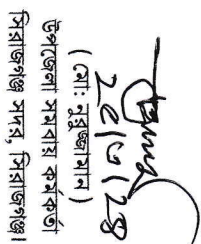 ২৫/৩/২৪
(মো: নুরুজ্জামান)
উপজেলা সমবায় কর্মকর্তা
সিরাজগঞ্জ সদর, সিরাজগঞ্জ।